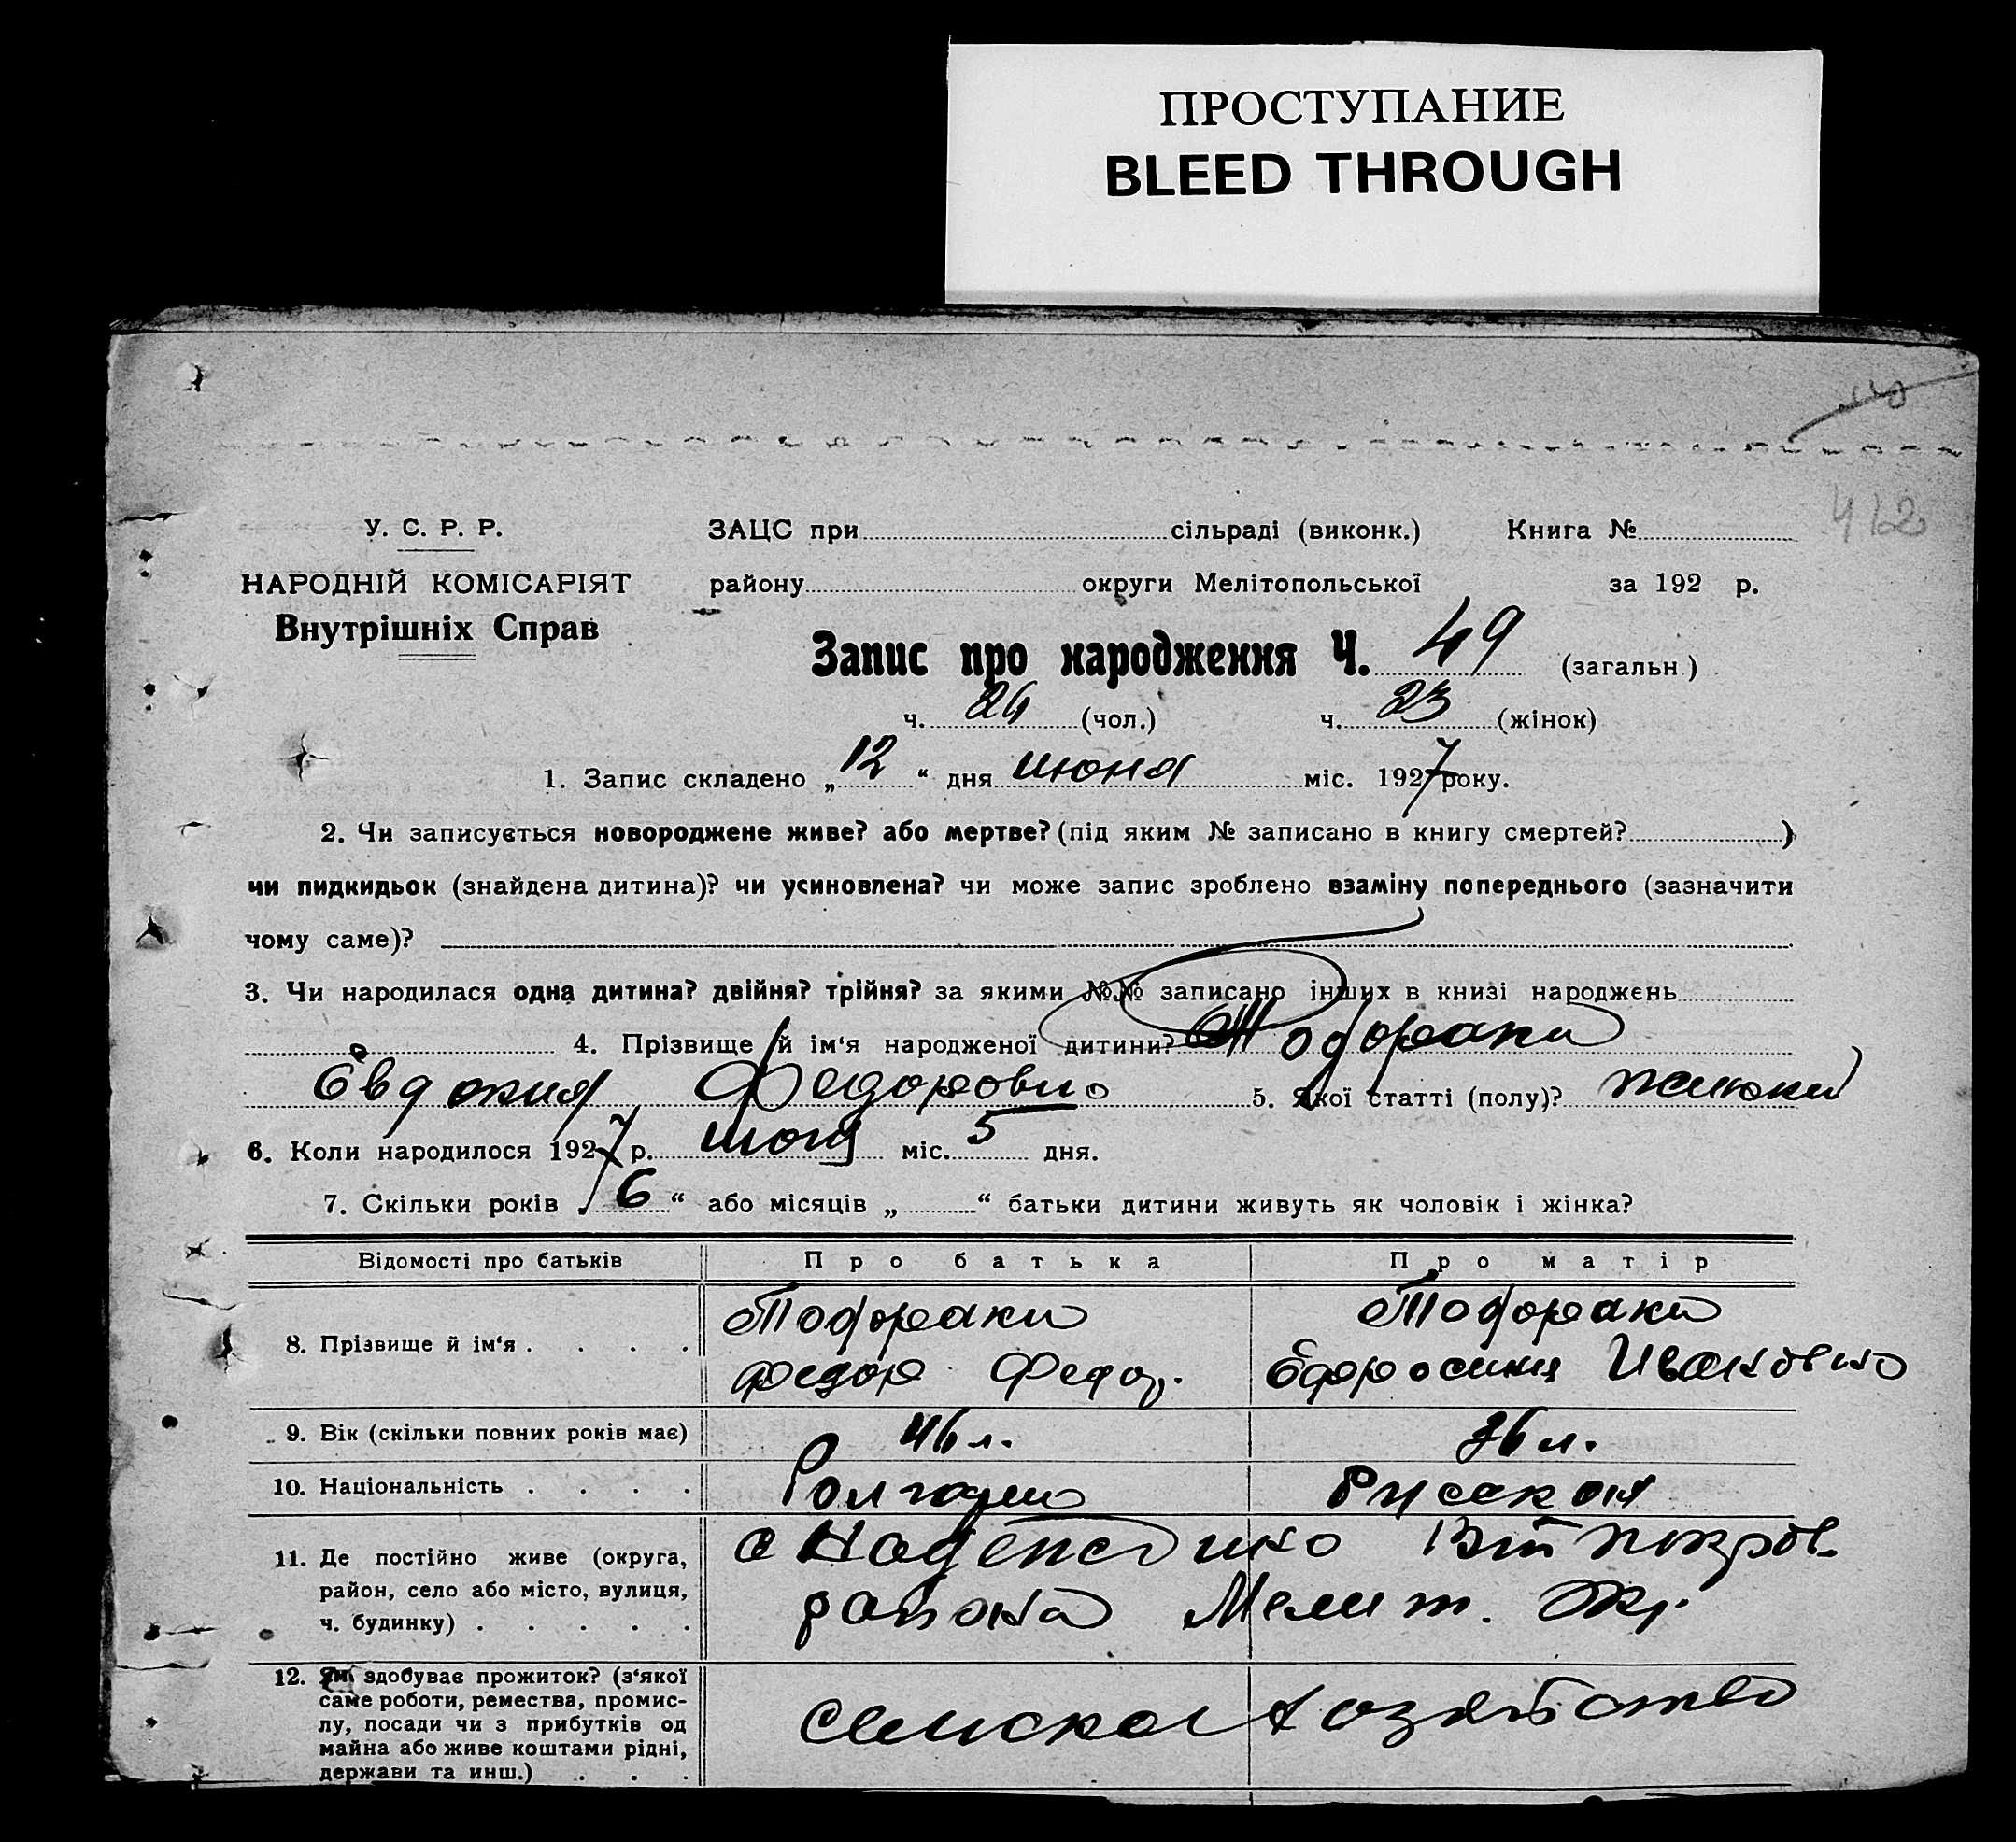 ПРОСТУПАНИЕ
BLEED THROUGH
412
У. С. Р. Р.
ЗАЦС при сільраді (виконк.) Книга №
НАРОДНІЙ КОМІСАРІЯТ
району округи Мелітопольської за 192 р.
Внутрішніх Справ
Запис про народження Ч. 49 (загальн.)
ч. 26 (чол.) ч. 23 (жінок)
1. Запис складено „ 12 “ дня июня міс. 1927 року.
2. Чи записується новороджене живе? або мертве? (під яким № записано в книгу смертей? )
чи пидкидьок (знайдена дитина)? чи усиновлена? чи може запис зроблено взаміну попереднього (зазначити
чому саме)?
3. Чи народилася одна дитина? двійня? трійня? за якими №№ записано інших в книзі народжень
4. Прізвище й ім‘я народженої дитини? Тодораки
Евдокия Федоровна 5. Якої статті (полу)? женский
6. Коли народилося 1927 р. июня міс. 5 дня.
7. Скільки років „ 6 “ або місяців „ “ батьки дитини живуть як чоловік і жінка?
Відомості про батьків Про батька Про матір
8. Прізвище й ім‘я . . . . Тодораки Тодораки
Федор Федор. Ефросиния Ивановна
9. Вік (скільки повних років має) 46 л. 36 л.
10. Національність . . . . Русская
11. Де постійно живе (округа, район, село або місто, вулиця, ч. будинку) . . . . .
района Мелит. Окр.
12. Як здобуває прожиток? (з‘якої
саме роботи, ремества, промис-
лу, посади чи з прибутків од
майна або живе коштами рідні,
держави та инш.) . . .
сельское хозяйство